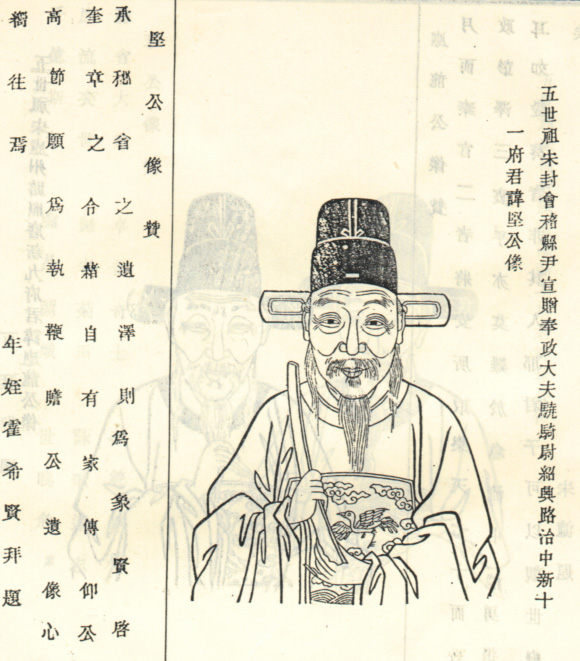 五世祖未封會稽縣尹宣贈奉政大夫驍騎尉紹興路治中新十
一府君諱堅公像
堅公像贊
承祕省之遺澤則爲象賢啓
奎章之令緒自有家傳仰公
高節願爲執鞭瞻公遺像心
嚮往焉
年姪霍希賢拜題